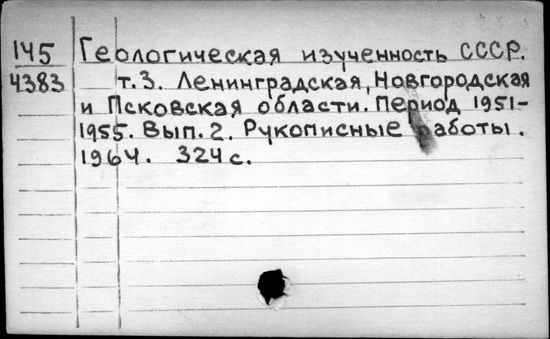 145 Геологическая изученность СССР.
4383 т.3. Ленинградская, Новгородская
и Псковская области. Период 1951-
1955. Вып. 2. Рукописные работы.
1964. 324 с.